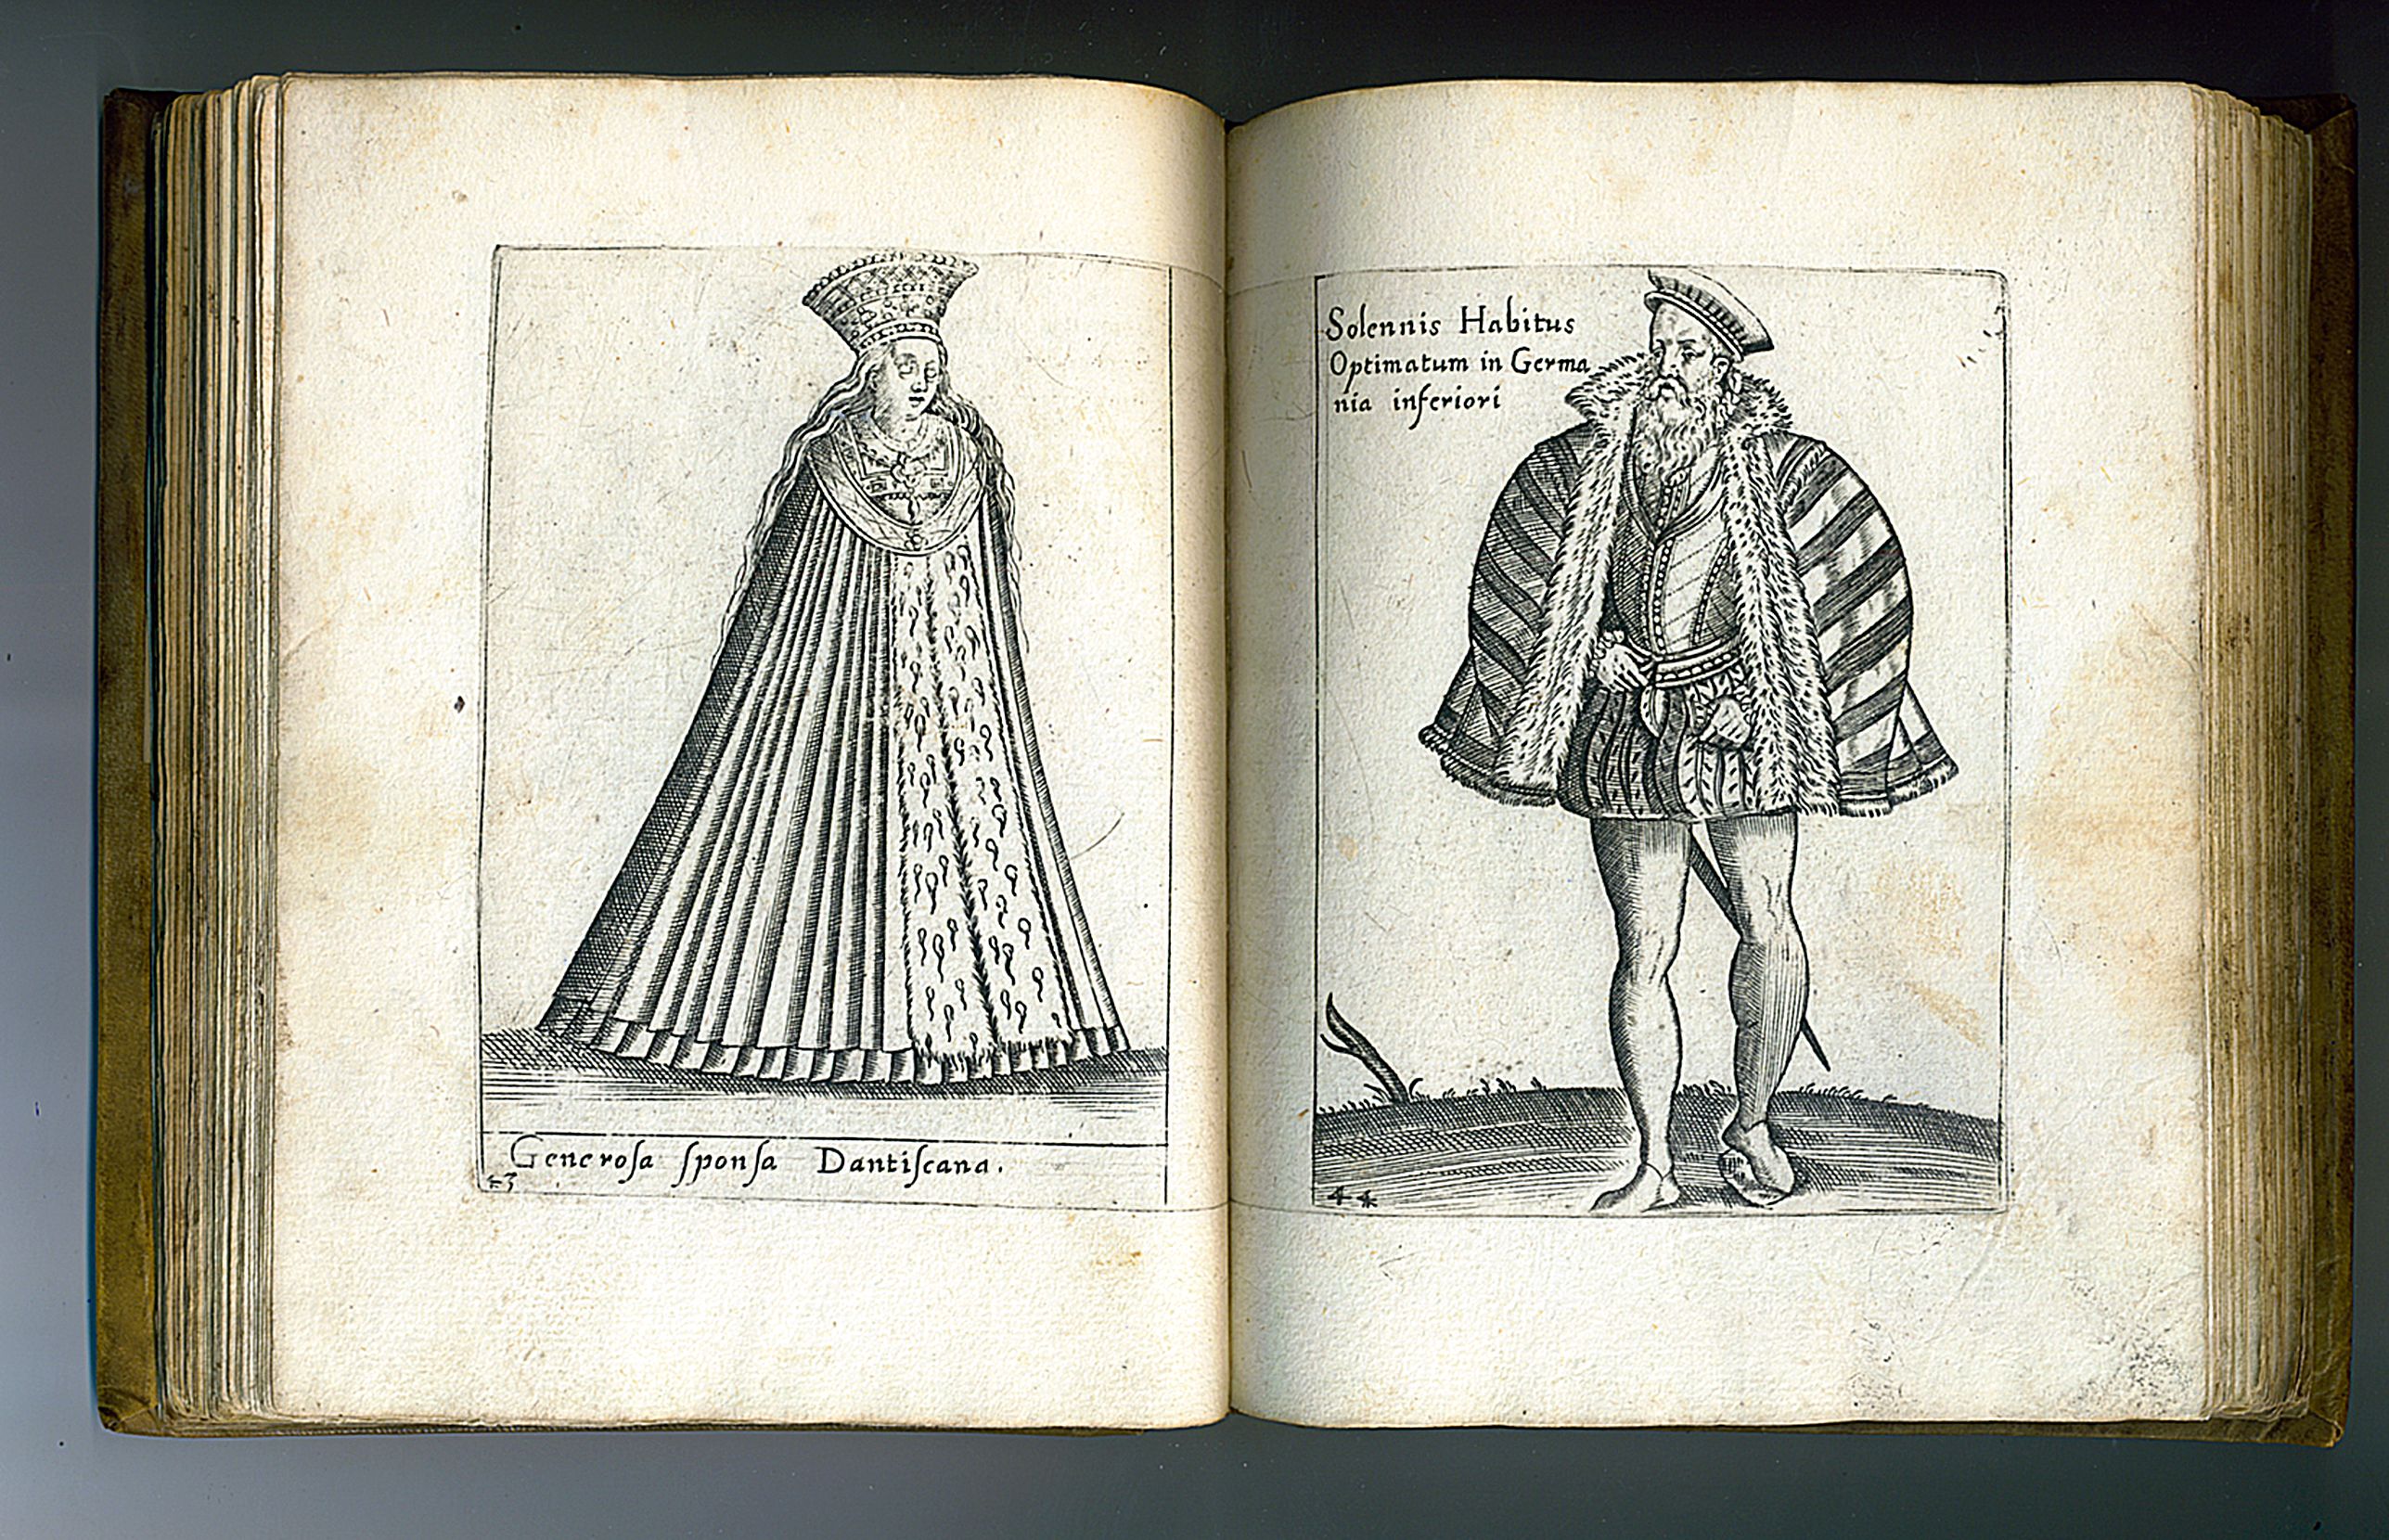 Generoſa ſponſa Dantiſcana.
43
Solennis Habitus
Optimatum in Germa
nia inferiori
44